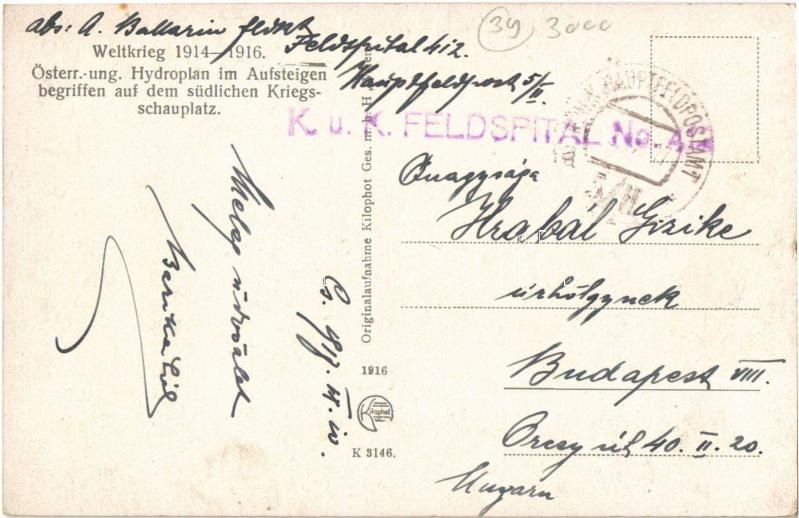 abs: A. Ballarin
Feldspital 4/2.
Hauptfeldpost 5/II.
39 3000
Weltkrieg 1914—1916.
Österr.-ung. Hydroplan im Aufsteigen
begriffen auf dem südlichen Kriegs-
schauplatz.
K. u. K. FELDSPITAL No. 4
HAUPTFELDPOSTAMT
Őnagysága
Hrabal Gizike
úrhölgynek
Budapest VIII.
Orczy út 40. II. 20.
Ungarn
Originalaufnahme Kilophot Ges. m. b. H.
1916
Kilophot
K 3146.
Meleg üdvözlet